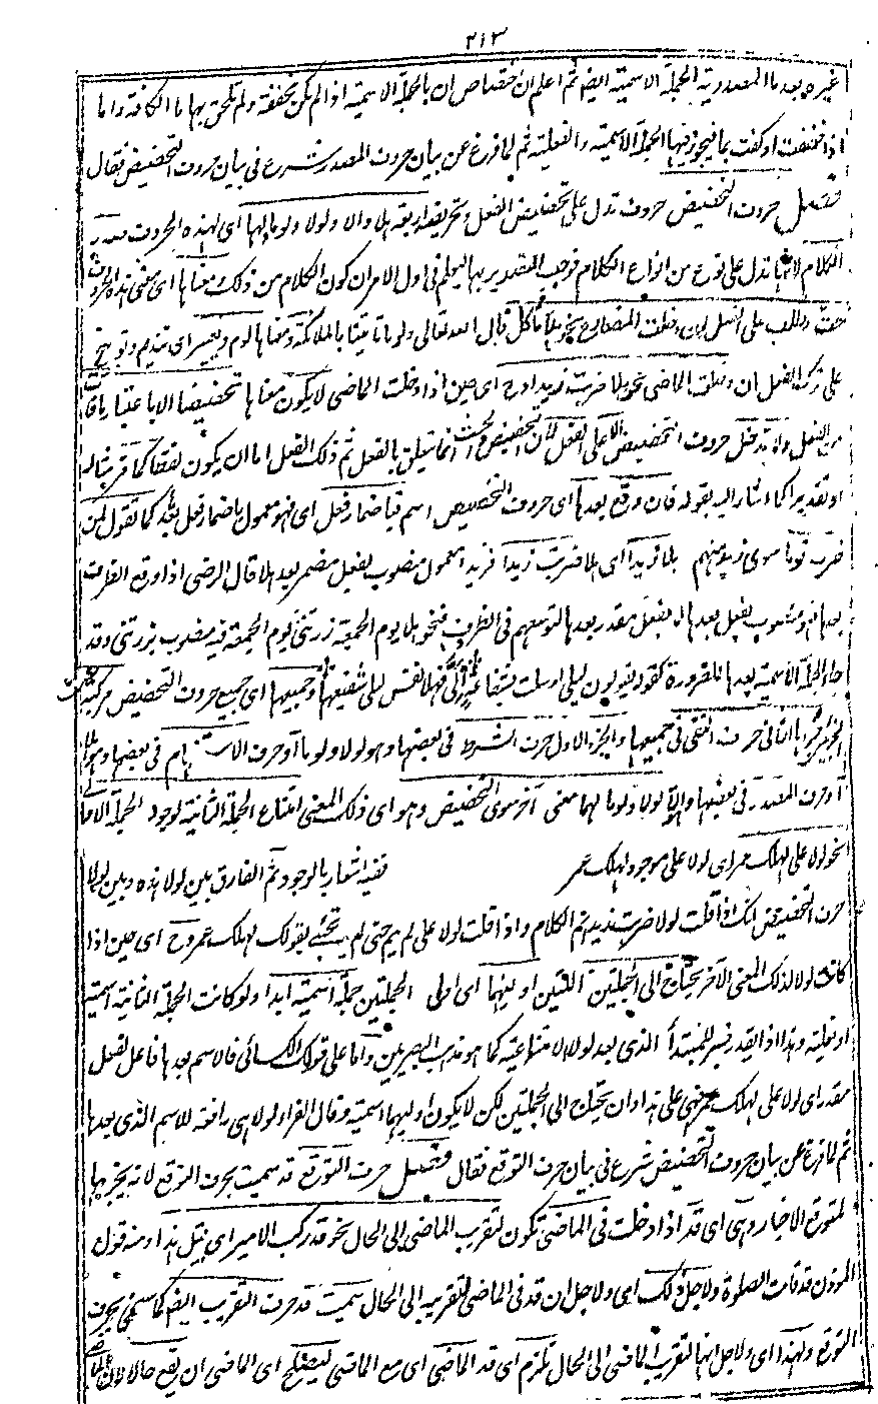 ٢١٣
غيره بعد ما المصدرية الجملة الاسمية ايضا ثم اعلم ان اختصاص ان بالجملة الاسمية اذا لم تكن مخففة ولم تلحق بها ما الكافة واما
اذا خففت او كفت بما فيجوز فيها الجملة الاسمية والفعلية ثم لما فرغ عن بيان حروف المصدر شرع فى بيان حروف التحضيض فقال
فصل حروف التحضيض حروف تدل على تحضيض الفعل وتحريضه اربعة هلا والا ولولا ولوما لها اى لهذه الحروف صدر
الكلام لانها تدل على نوع من انواع الكلام فوجب التصدير بها ليعلم فى اول الامر ان كون الكلام من ذلك ومعناها اى معنى هذه الحروف
حث وطلب على الفعل ان دخلت المضارع نحو هلا تأكل قال الله تعالى لوما تاتينا بالملائكة ومعناها لوم وتعيير اى تنديم وتوبيخ
على ترك الفعل ان دخلت الماضى نحو هلا ضربت زيدا وح اى حين اذا دخلت الماضى لا يكون معناها تحضيضا الا باعتبار ما فات
من الفعل ولا تدخل حروف التحضيض الا على الفعل لان التحضيض والحث انما يتعلق بالفعل ثم ذلك الفعل اما ان يكون لفظا كما مر مثاله
او تقديرا كما اشار اليه بقوله فان وقع بعدها اى حروف التحضيض اسم فباضمار فعل اى فهو معمول باضمار فعل بعده كما تقول لمن
ضرب قوما سوى زيد منهم هلا زيدا اى هلا ضربت زيدا فزيدا معمول منصوب بفعل مضمر بعد هلا قال الرضى اذا وقع الظرف
بعدها فهو منصوب بفعل بعدها لا بفعل مقدر بعدها لتوسعهم فى الظروف فنحو هلا يوم الجمعة زرتنى يوم الجمعة فيه منصوب بزرتنى وقد
جاء الجملة الاسمية بعدها للضرورة كقوله يقولون ليلى ارسلت بشفاعة الى فهلا نفس ليلى شفيعها وجميعها اى جميع حروف التحضيض مركبة
الجزء الثانى حرف النفى فى جميعها والجزء الاول حرف الشرط فى بعضها وهو لولا ولوما او حرف الاستفهام فى بعضها وهو هلا
او حرف المصدر فى بعضها وهو الا ولولا ولوما لهما معنى آخر سوى التحضيض وهو اى ذلك المعنى امتناع الجملة الثانية لوجود الجملة الاولى
نحو لولا على لهلك عمر اى لولا على موجود لهلك عمر ففيه اشعار بالوجود ثم الفارق بين لولا هذه وبين لولا
حرف التحضيض انك اذا قلت لولا ضربت زيدا تم الكلام واذا قلت لولا على لم يتم حتى لم يجئ بقولك لهلك عمر وح اى حين اذا
كانت لولا لذلك المعنى الآخر يحتاج الى الجملتين اللتين اوليهما اى اولى الجملتين جملة اسمية ابدا ولو كانت الجملة الثانية اسمية
او فعلية وهذا اذا لقدر خبر للمبتدأ الذى بعد لولا الامتناعية كما هو مذهب البصريين واما على قول الكسائى فالاسم بعدها فاعل لفعل
مقدر اى لولا على لهلك عمر فهى على هذا وان يحتاج الى الجملتين لكن لا يكون اوليهما اسمية وقال الفراء لولا هى رافعة للاسم الذى بعدها
ثم لما فرغ عن بيان حروف التحضيض شرع فى بيان حرف التوقع فقال فصل حرف التوقع قد سميت بحرف التوقع لانه يخبر بها
لمتوقع الاخبار وهى اى قد اذا دخلت فى الماضى تكون لتقريب الماضى الى الحال نحو قد ركب الامير اى قبيل هذا ومنه قول
المؤذن قد قامت الصلوة ولاجل ذلك اى ولاجل ان قد فى الماضى لتقريبه الى الحال سميت قد حرف التقريب ايضا كما سمى بحرف
التوقع ولهذا اى ولاجل انها لتقريب الماضى الى الحال تلزم اى قد الماضى اى مع الماضى ليصلح اى الماضى ان يقع حالا لان الماضى